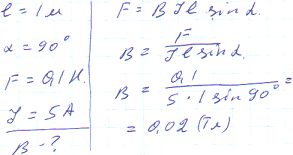 l = 1 м
α = 90°
F = 0,1 Н.
J = 5 А
B - ?
F = B J l sin α.
B = F / J l sin α.
B = 0,1 / 5 · 1 sin 90° =
= 0,02 (Тл)